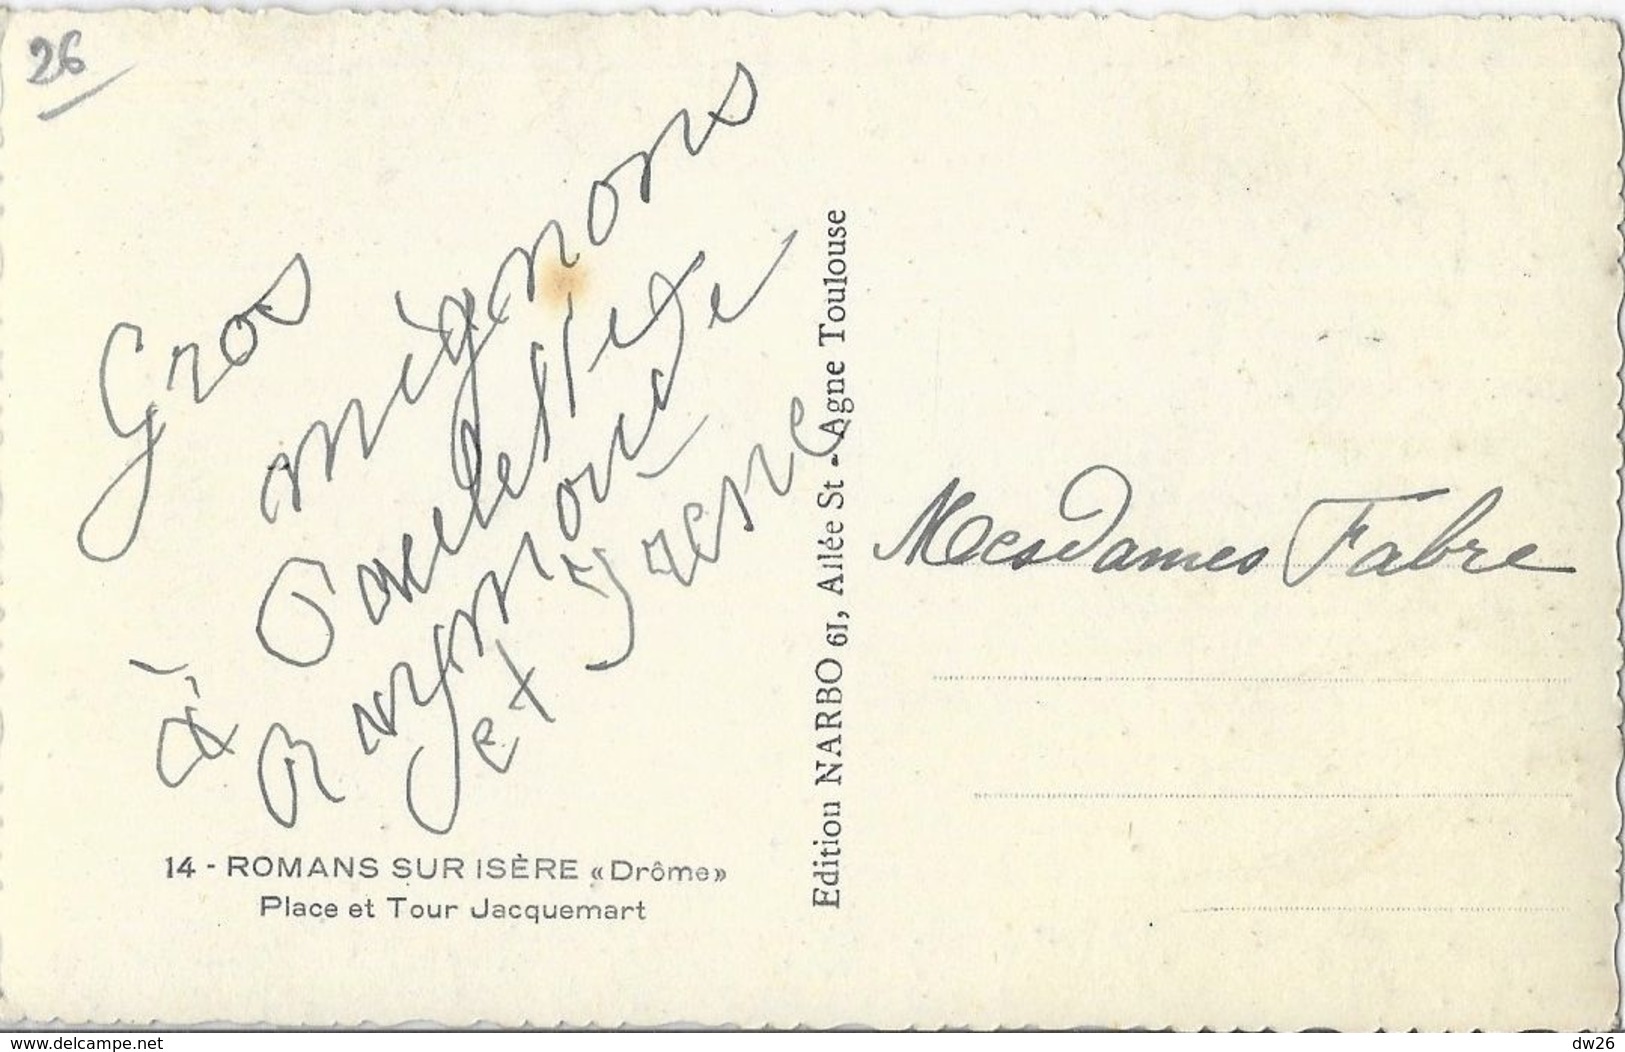 26
Gros
mignons
à Paulette
Raymonde
et
14 - ROMANS SUR ISÈRE «Drôme»
Place et Tour Jacquemart
Edition NARBO 61, Allée St - Agne Toulouse
Mesdames Fabre
www.delcampe.net
dw26